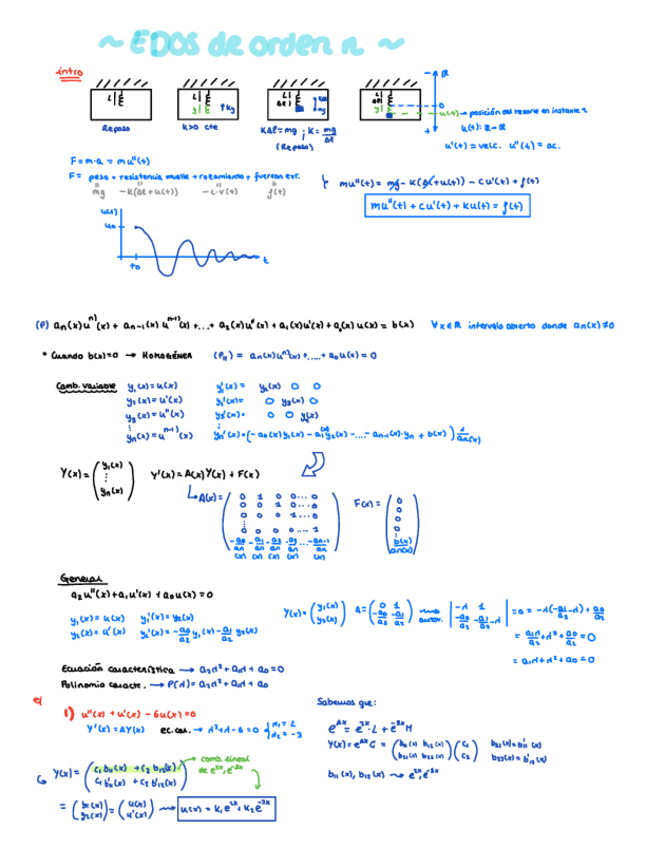 ~ EDOS de orden n ~
intro
Reposo
K>0 cte
KΔl = mg ; K = mg/Δl
(Reposo)
u(t) → posición del resorte en instante t
u(t): ℝ → ℝ
u'(t) = veloc. u''(t) = ac.
F = m·a = mu''(t)
F = peso + resistencia muelle + rozamiento + fuerzas ext.
mg -K(Δl+u(t)) -c·v(t) f(t)
mu''(t) = mg - K(Δl+u(t)) - cu'(t) + f(t)
mu''(t) + cu'(t) + Ku(t) = f(t)
u(t)
u₀
t₀
t
(P) aₙ(x)uⁿ⁾(x) + aₙ₋₁(x)uⁿ⁻¹⁾(x) + ... + a₂(x)u''(x) + a₁(x)u'(x) + a₀(x)u(x) = b(x) ∀x∈ℝ intervalo abierto donde aₙ(x)≠0
• Cuando b(x)=0 → HOMOGÉNEA (Pₕ) = aₙ(x)uⁿ⁾(x) + ..... + a₀u(x) = 0
Camb. variable y₁(x) = u(x) y₁'(x) = y₂(x) 0 0
y₂(x) = u'(x) y₂'(x) = 0 y₃(x) 0
y₃(x) = u''(x) y₃'(x) = 0 0
yₙ(x) = uⁿ⁻¹⁾(x) yₙ'(x) = (-a₀(x)y₁(x) - a₁(x)y₂(x) - .... - aₙ₋₁(x)·yₙ + b(x)) 1/aₙ(x)
Y(x) = (y₁(x) ⋮ yₙ(x)) Y'(x) = A(x)Y(x) + F(x)
A(x) = F(x) =
0 1 0 0 ... 0 0
0 0 1 0 ... 0 0
0 0 0 1 ... 0 0
0 0 0 0 .... 1
-a₀/aₙ -a₁/aₙ -a₂/aₙ -a₃/aₙ ... -aₙ₋₁/aₙ b(x)/aₙ(x)
(x) (x) (x) (x) (x)
General
a₂u''(x) + a₁u'(x) + a₀u(x) = 0
y₁(x) = u(x) y₁'(x) = y₂(x)
y₂(x) = u'(x) y₂'(x) = -a₀/a₂ y₁(x) - a₁/a₂ y₂(x)
Y(x) = (y₁(x) y₂(x)) A = (0 1 -a₀/a₂ -a₁/a₂) autov. |-λ 1 -a₀/a₂ -a₁/a₂-λ| = 0 = -λ(-a₁/a₂-λ) + a₀/a₂
= a₁λ/a₂ + λ² + a₀/a₂ = 0
= a₁λ + λ² + a₀ = 0
Ecuación característica → a₂λ² + a₁λ + a₀ = 0
Polinomio caracte. → P(λ) = a₂λ² + a₁λ + a₀
ej
1) u''(x) + u'(x) - 6u(x) = 0
Y'(x) = AY(x) ec. car. → λ²+λ-6=0 { λ₁ = 2 λ₂ = -3
Y(x) = (c₁b₁₁(x) + c₂b₁₂(x) c₁b₁₁'(x) + c₂b₁₂'(x)) → comb. lineal de e²ˣ, e⁻³ˣ
= (y₁(x) y₂(x)) = (u(x) u'(x)) → u(x) = K₁e²ˣ + K₂e⁻³ˣ
Sabemos que:
eᴬˣ = e²ˣ·L + e⁻³ˣM
Y(x) = eᴬˣC = (b₁₁(x) b₁₂(x) b₂₁(x) b₂₂(x)) (c₁ c₂) b₂₁(x) = b₁₁'(x)
b₂₂(x) = b₁₂'(x)
b₁₁(x), b₁₂(x) → e²ˣ, e⁻³ˣ